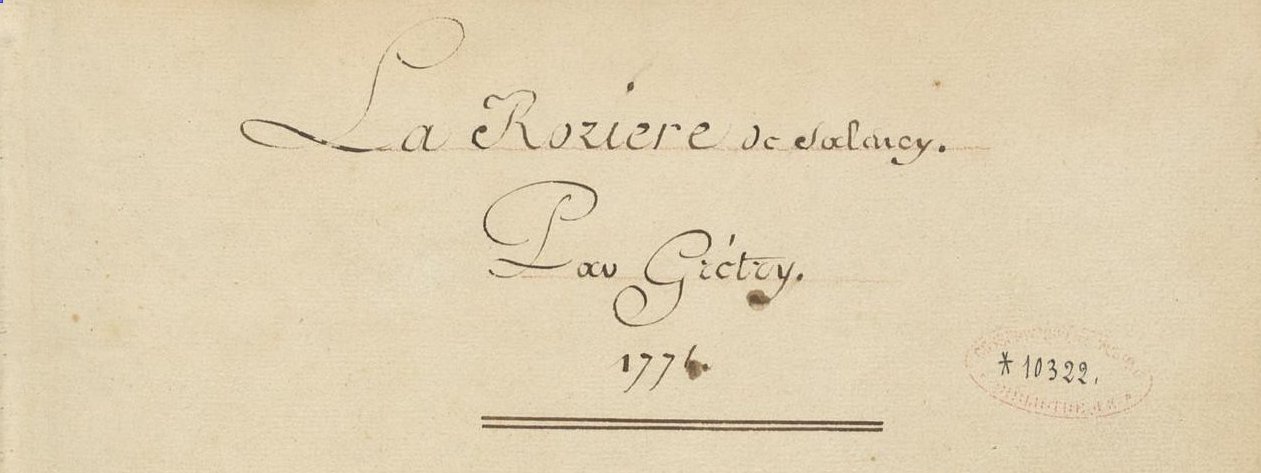 La Roziere de Salency.
Par Grétry.
1776.
* 10322.